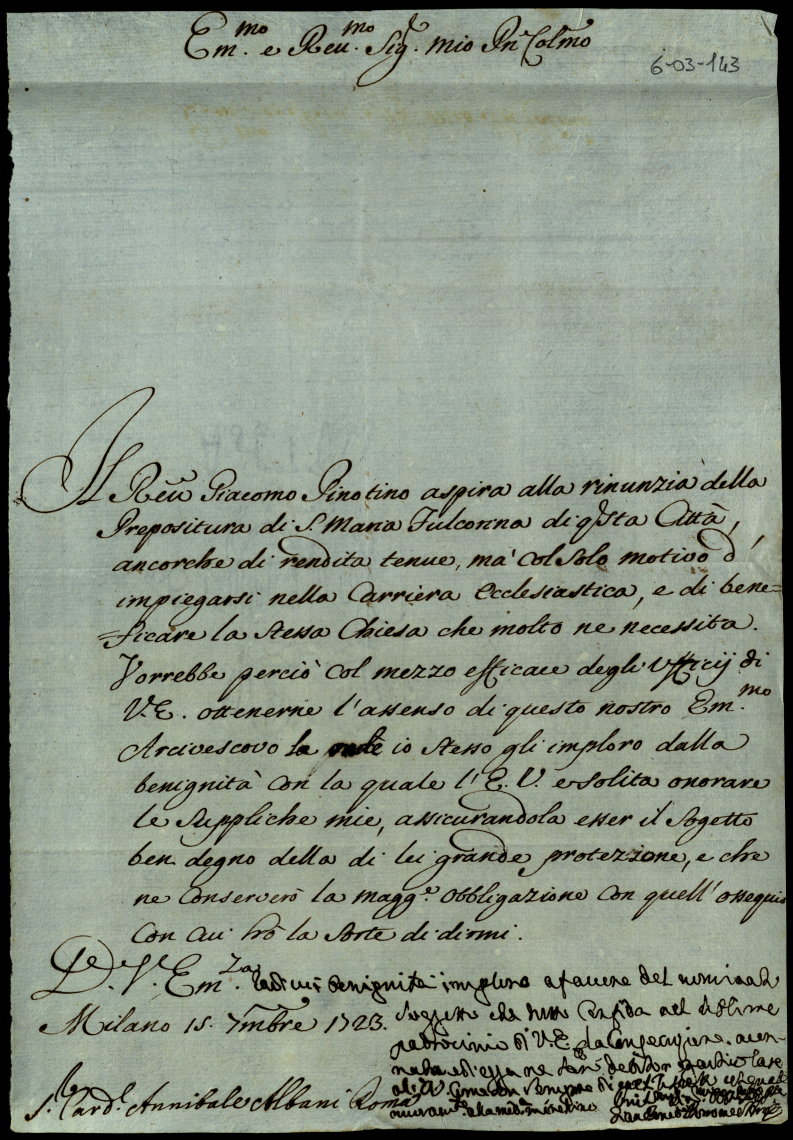 Em.mo e Reu.mo Sig. mio Pn Colmo
6-03-143
Il Reu Giacomo Pinotino aspira alla rinunzia della
Prepositura di S. Maria Fulcorina di qsta Città,
ancorche di rendita tenue, mà col solo motivo d'
impiegarsi nella Carriera Ecclesiastica, e di bene=
=ficare la stessa Chiesa che molto ne necessita.
Vorrebbe perciò col mezzo efficace degli Ufficij di
V.E. ottenerne l'assenso di questo nostro Em.mo
Arcivescovo la onde io stesso gli imploro dalla
benignità con la quale l'E.V. è solita onorare
le suppliche mie, assicurandola esser il Sogetto
ben degno della di lei grande protezione, e che
ne conserverò la magg.e obbligazione con quell'ossequio
con cui hò la sorte di dirmi.
D. V. Em.za la di cui benignità imploro a favore del nominato
Milano 15. 7mbre 1723. Soggetto che tutto Confida nel sublime
patrocinio di V.E.
S. Card. Annibale Albani Roma